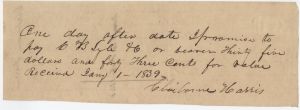 One day after date I promise to
pay C B Lyle & Co or bearer thirty five
dollars and forty three Cents for value
Received Jany 1 - 1839
Harris